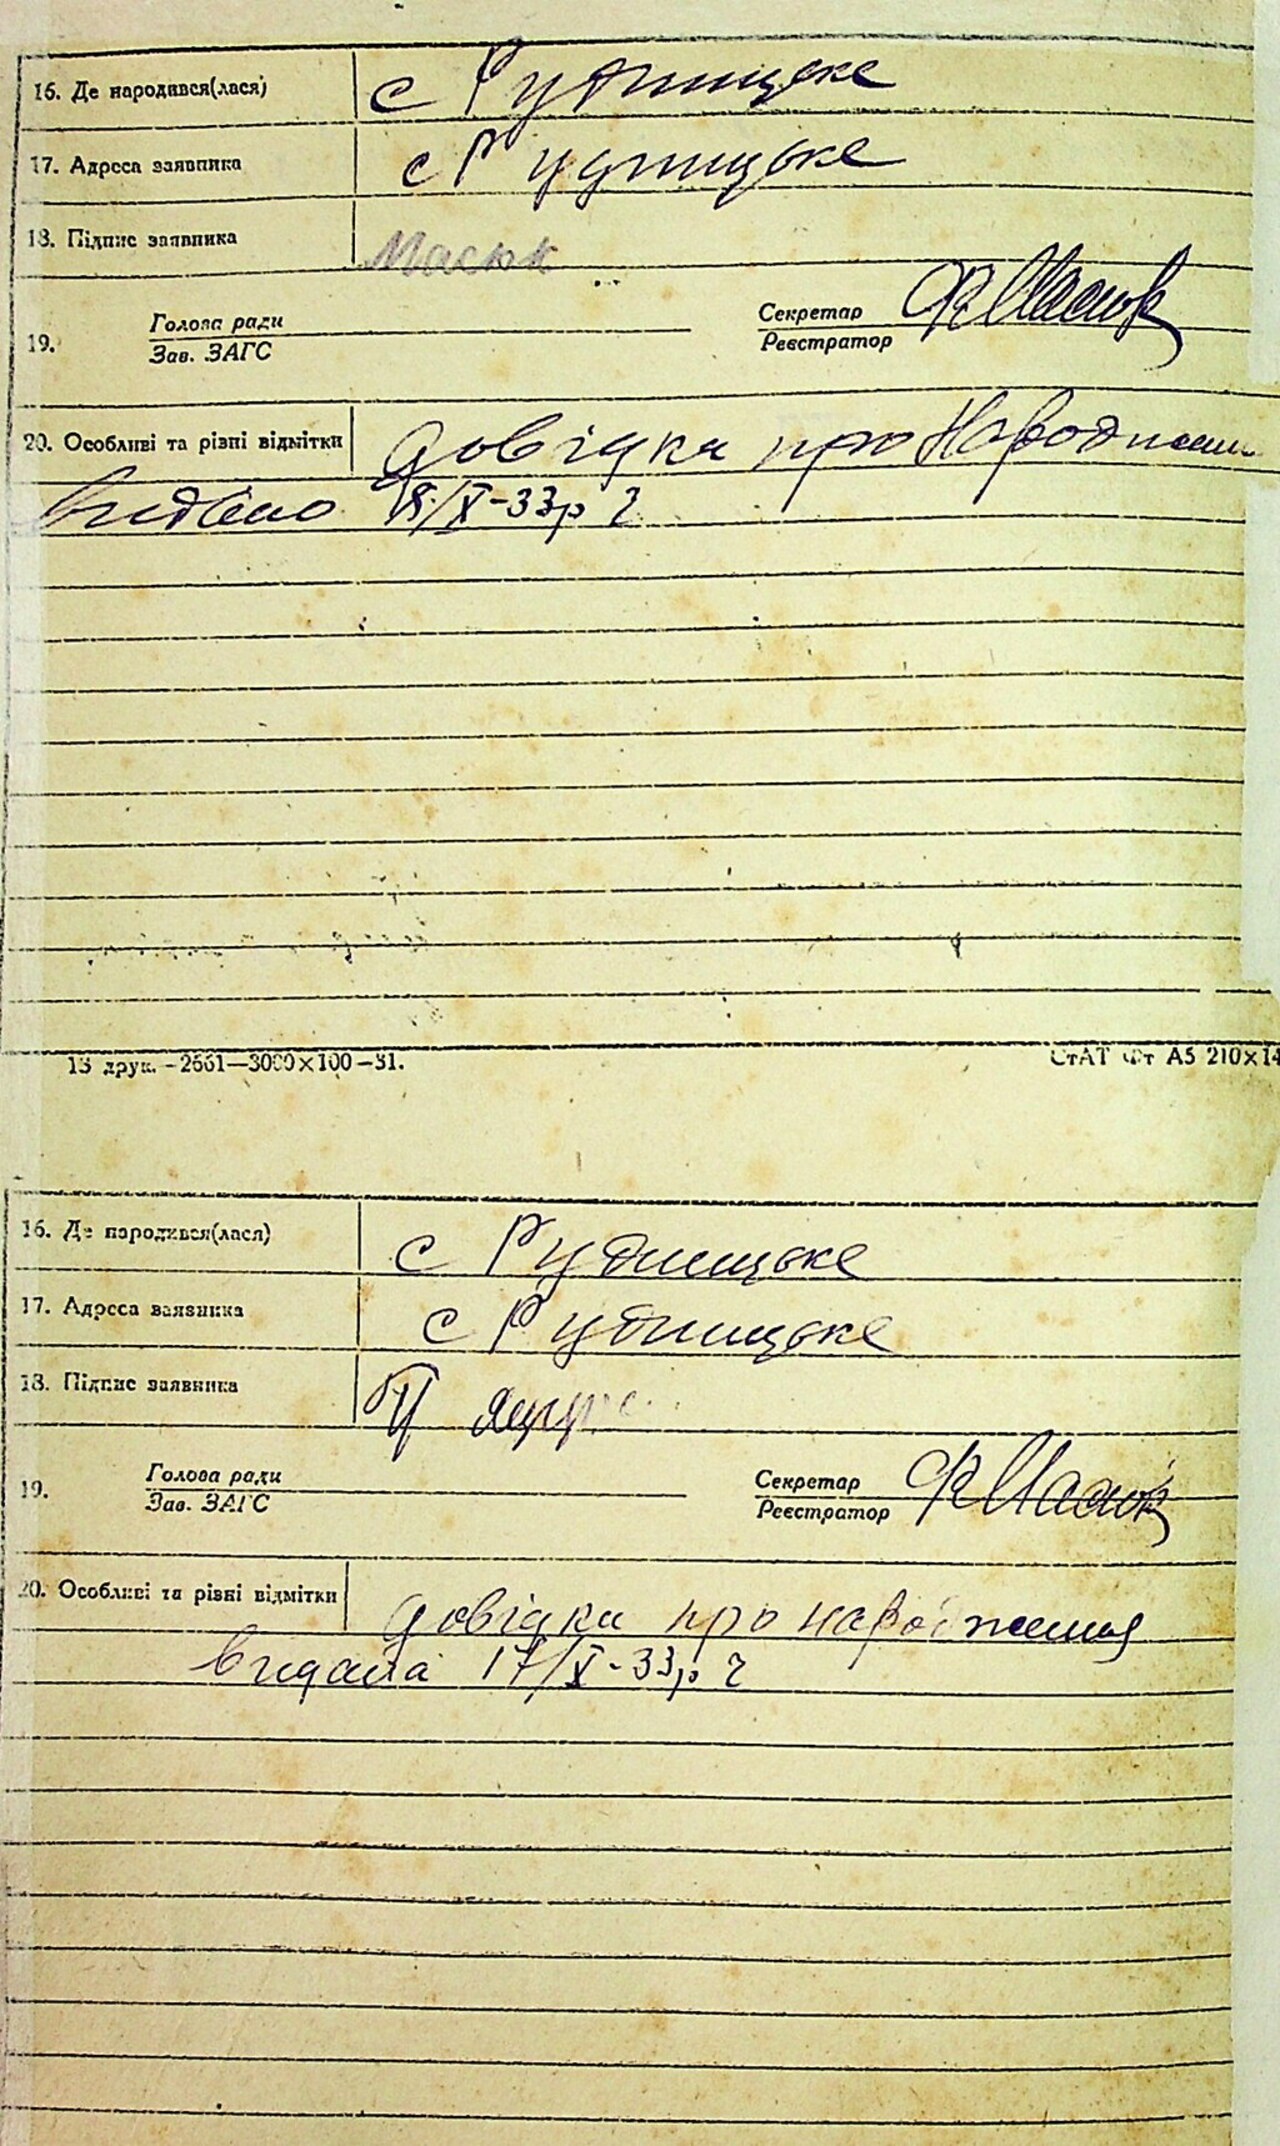 16. Де народився(лася) с Рудницьке
17. Адреса заявника с Рудницьке
18. Підпис заявника Масюк
Голова ради Секретар Масюк
19. Зав. ЗАГС Реєстратор
20. Особливі та рівні відмітки Довідка про Народження
Видано 18/X-33р
13 друк. -2661—3000×100-31. СтАТ Фт А5 210×14
16. Де народився(лася) с Рудницьке
17. Адреса заявника с Рудницьке
18. Підпис заявника
Голова ради Секретар Масюк
19. Зав. ЗАГС Реєстратор
20. Особливі та рівні відмітки Довідка про народження
видана 17/X-33р